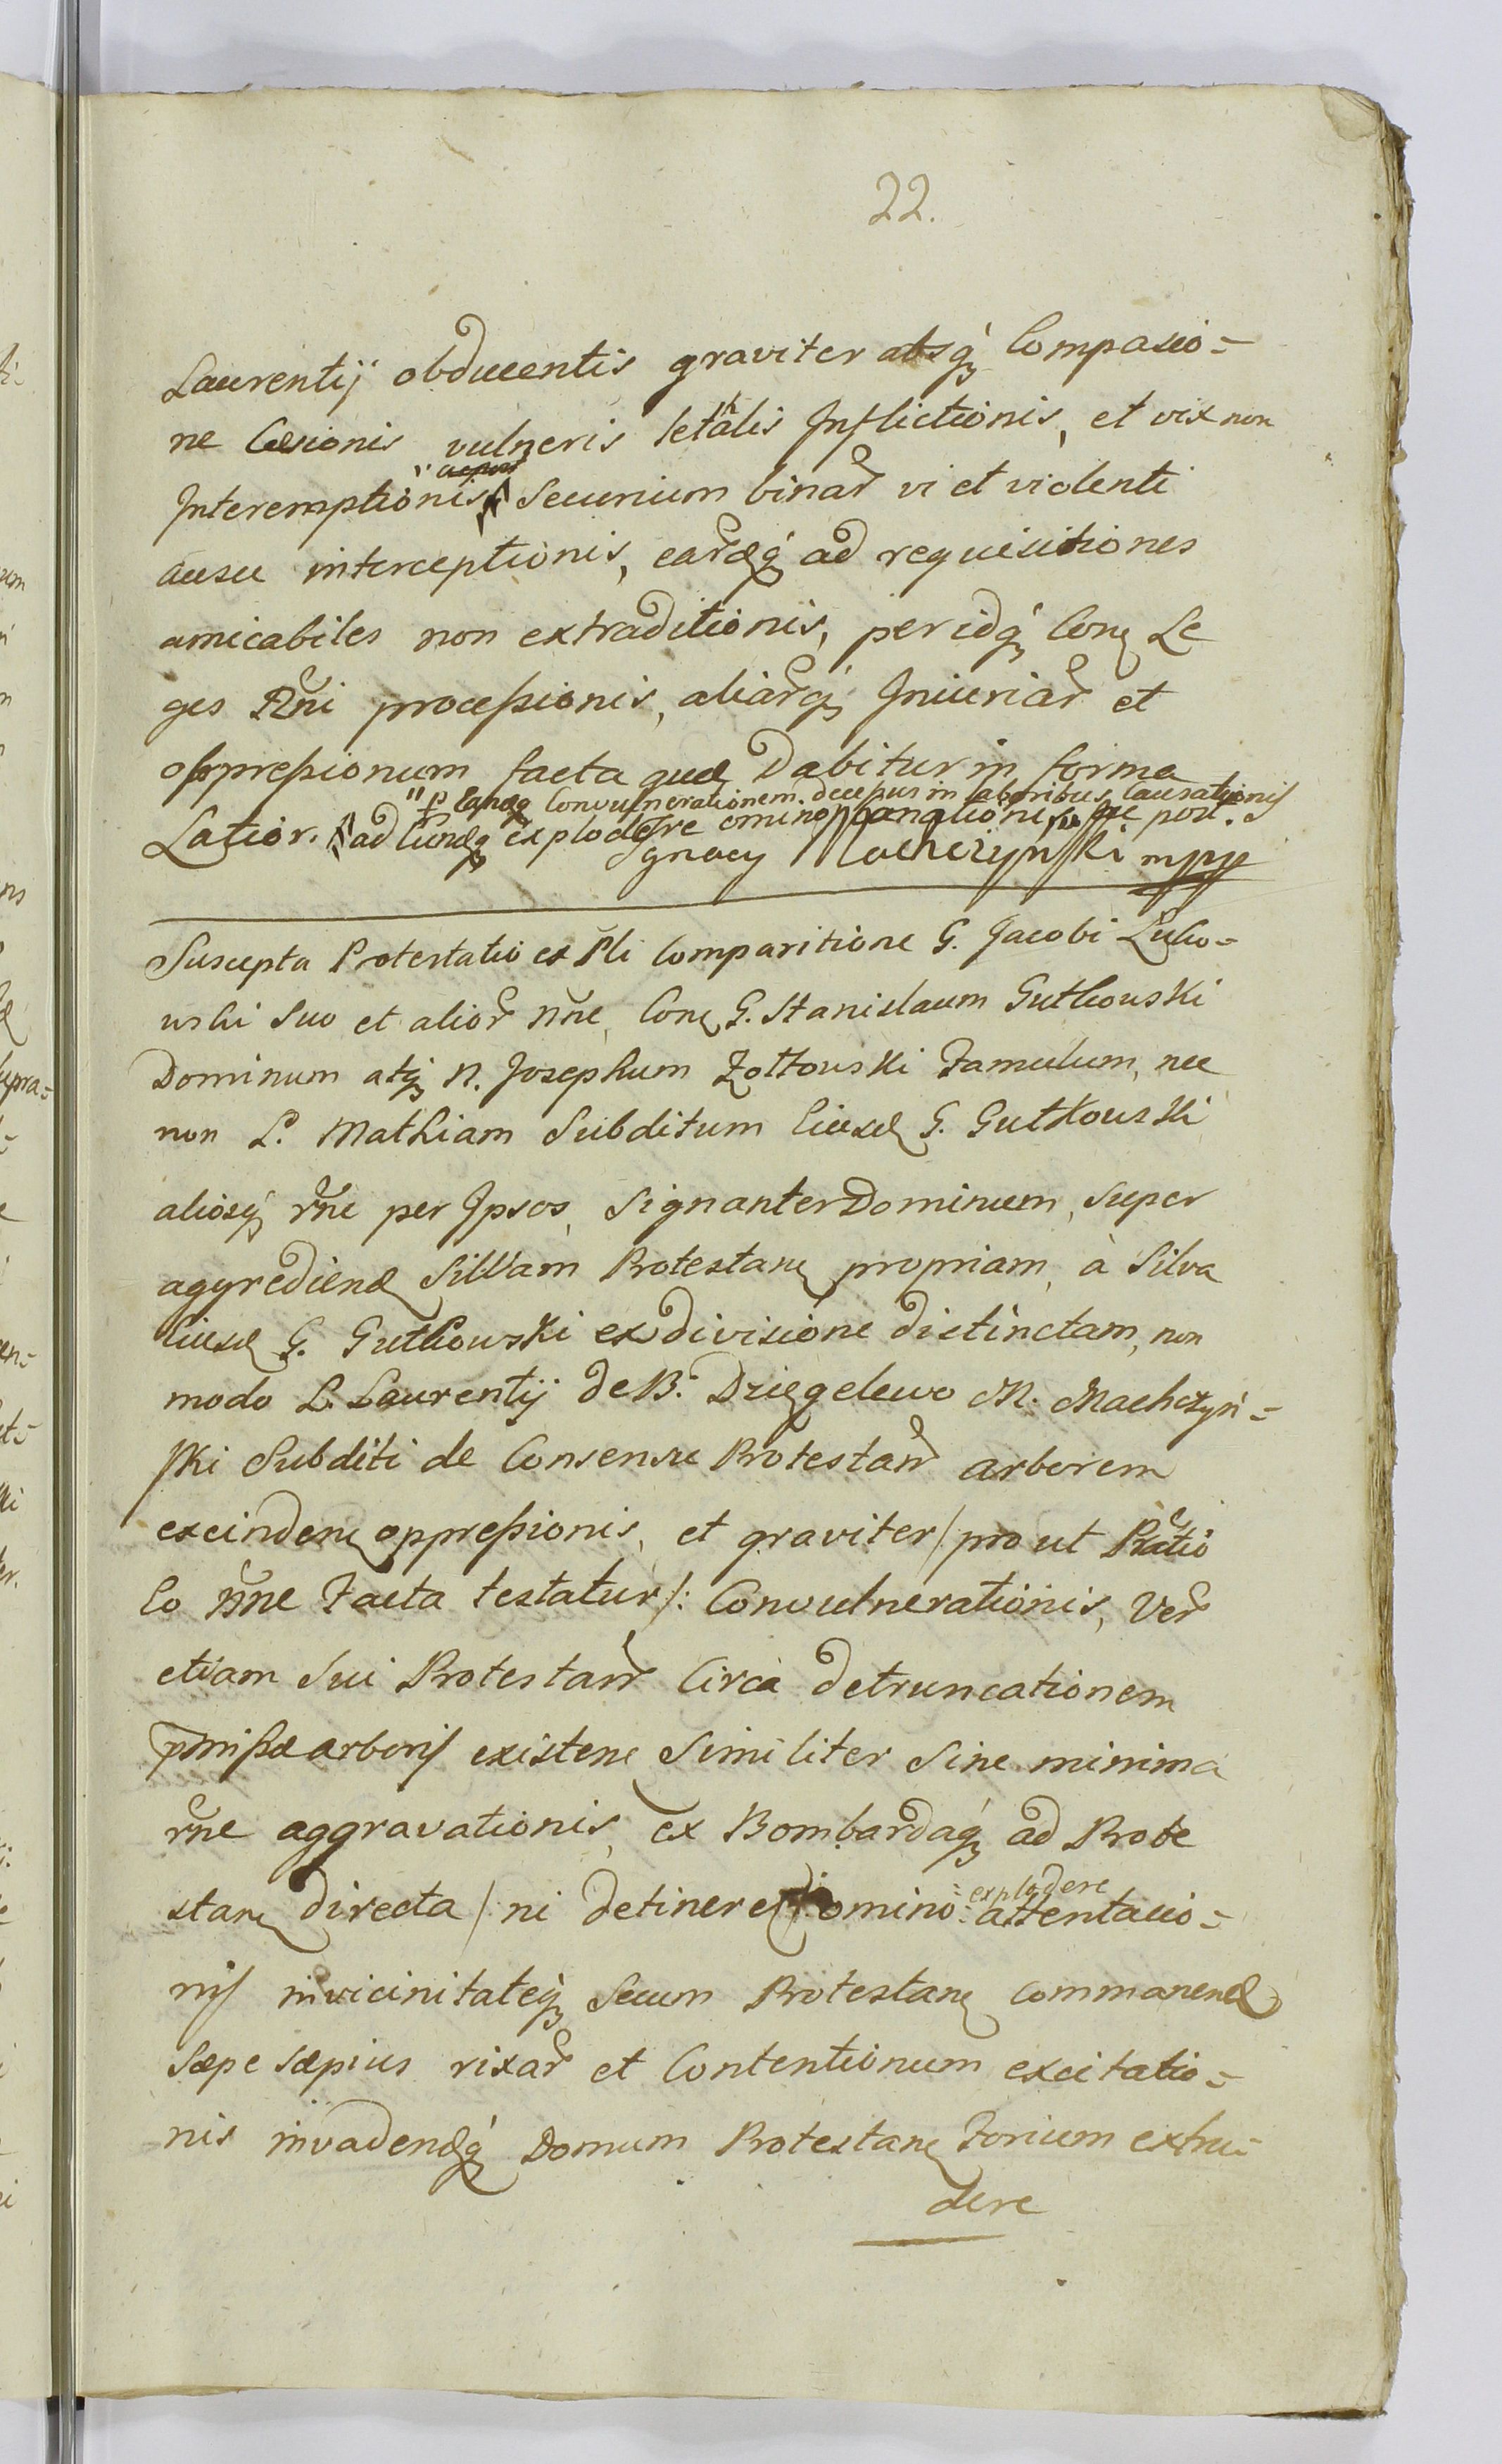 22.
Laurentij obducentis graviter absq₃ Compasio=
ne Cæsionis vulneris lethalis Inflictionis, et vix non
Interemptionis, Securium binar̃ vi et violenti
ausu interceptionis, earũq₃ ad requisitiones
amicabiles non extraditionis, per idq₃ Conȩ Le
ges Rñi processionis, aliarq₃ Iniuriar̃ et
oppressionum facta quæ Dabitur in forma
Latior.
" convulnerationem decepus in laboribus causationis
ad explodere omino post.
Ignacy Machczynski mpp
Suscepta Protestatio ex Pli Comparitione G. Jacobi Lulio=
wski Suo et alior̃ ñne, Conȩ G. Stanislaum Gutkowski
Dominum atq₃ N. Josephum Zołtowski Famulum, nec
non L. Mathiam Subditum Ciusdȩ G. Gutkowski
aliosq₃ r̃ne per Ipsos, Signanter Dominum, Super
aggrediendȩ Sillvam Protestanȩ propriam, à Silva
Ciusdȩ G. Gutkowski ex divisione distinctam, non
modo L. Laurentij de B. Dzięgelewo M. Machczyń=
ski Subditi de Consensu Protestan̄ arborem
excindenȩ oppressionis, et graviter /: pro ut Pr̃atio
Co ñne Facta testatur /: Convulnerationis, Ver̃
etiam Sui Protestan̄ Circa detruncationem
p̄missæ arboris existenȩ Similiter Sine minima
r̃ne aggravationis, ex Bombardaq₃ ad Prote
stanȩ directa /: ni detineret omino explodere attentatio=
nis in vicinitateq₃ Secum Protestanȩ commanendȩ
Sæpe sæpius rixar̃ et Contentionum excitatio=
nis invadendq₃ Domum Protestanȩ Forium extru=
dere